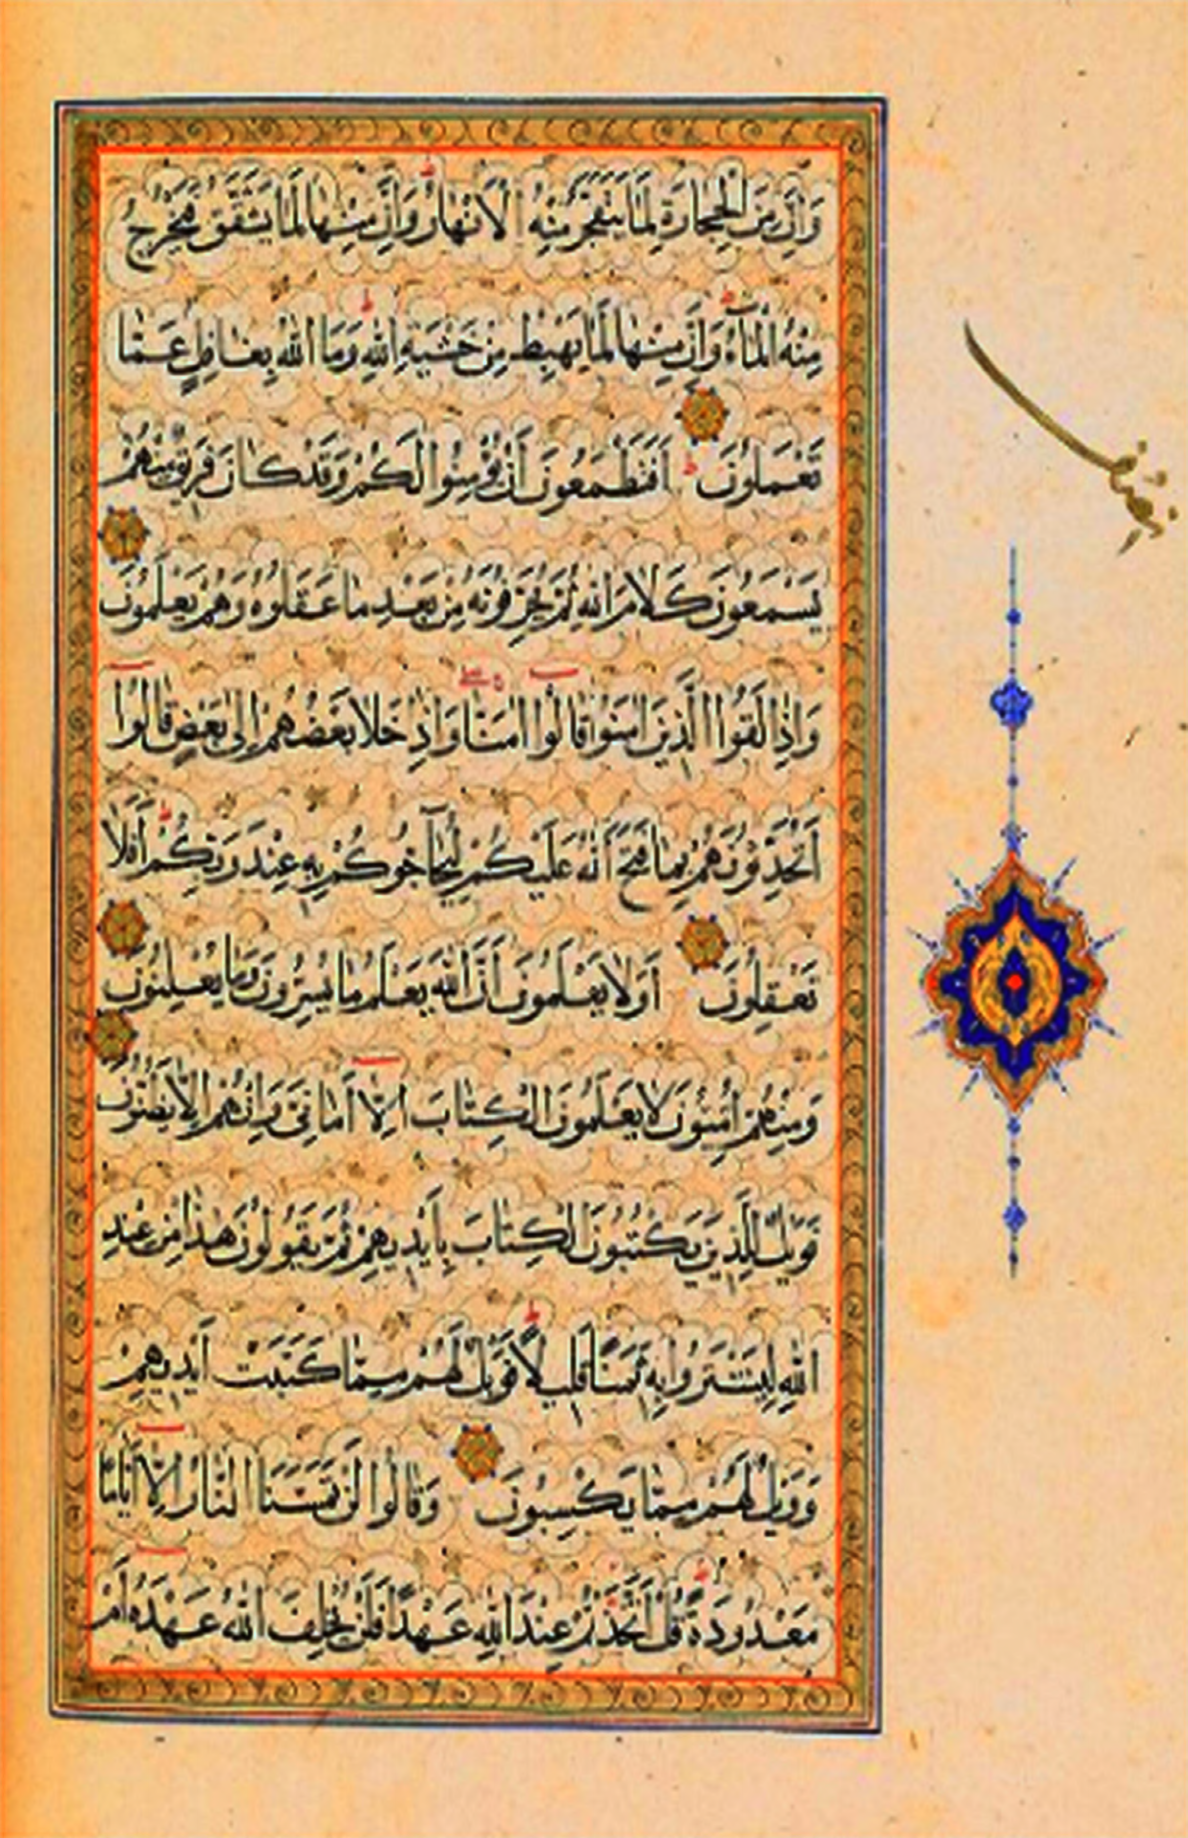 وَاِنَّ مِنَ الْحِجَارَةِ لَمَا يَتَفَجَّرُ مِنْهُ الْاَنْهَارُ وَاِنَّ مِنْهَا لَمَا يَشَّقَّقُ فَيَخْرُجُ
مِنْهُ الْمَآءُ وَاِنَّ مِنْهَا لَمَا يَهْبِطُ مِنْ خَشْيَةِ اللّٰهِ وَمَا اللّٰهُ بِغَافِلٍ عَمَّا
تَعْمَلُونَ اَفَتَطْمَعُونَ اَنْ يُؤْمِنُوا لَكُمْ وَقَدْ كَانَ فَرِيقٌ مِنْهُمْ
يَسْمَعُونَ كَلَامَ اللّٰهِ ثُمَّ يُحَرِّفُونَهُ مِنْ بَعْدِ مَا عَقَلُوهُ وَهُمْ يَعْلَمُونَ
وَاِذَا لَقُوا الَّذِينَ اٰمَنُوا قَالُوا اٰمَنَّا وَاِذَا خَلَا بَعْضُهُمْ اِلٰى بَعْضٍ قَالُوا
اَتُحَدِّثُونَهُمْ بِمَا فَتَحَ اللّٰهُ عَلَيْكُمْ لِيُحَآجُّوكُمْ بِهِ عِنْدَ رَبِّكُمْ اَفَلَا
تَعْقِلُونَ اَوَلَا يَعْلَمُونَ اَنَّ اللّٰهَ يَعْلَمُ مَا يُسِرُّونَ وَمَا يُعْلِنُونَ
وَمِنْهُمْ اُمِّيُّونَ لَا يَعْلَمُونَ الْكِتَابَ اِلَّا اَمَانِيَّ وَاِنْ هُمْ اِلَّا يَظُنُّونَ
فَوَيْلٌ لِلَّذِينَ يَكْتُبُونَ الْكِتَابَ بِاَيْدِيهِمْ ثُمَّ يَقُولُونَ هٰذَا مِنْ عِنْدِ
اللّٰهِ لِيَشْتَرُوا بِهِ ثَمَنًا قَلِيلًا فَوَيْلٌ لَهُمْ مِمَّا كَتَبَتْ اَيْدِيهِمْ
وَوَيْلٌ لَهُمْ مِمَّا يَكْسِبُونَ وَقَالُوا لَنْ تَمَسَّنَا النَّارُ اِلَّا اَيَّامًا
مَعْدُودَةً قُلْ اَتَّخَذْتُمْ عِنْدَ اللّٰهِ عَهْدًا فَلَنْ يُخْلِفَ اللّٰهُ عَهْدَهُ اَمْ